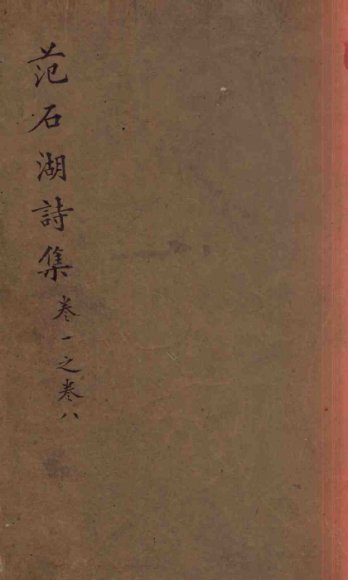 范石湖詩集卷一之卷八